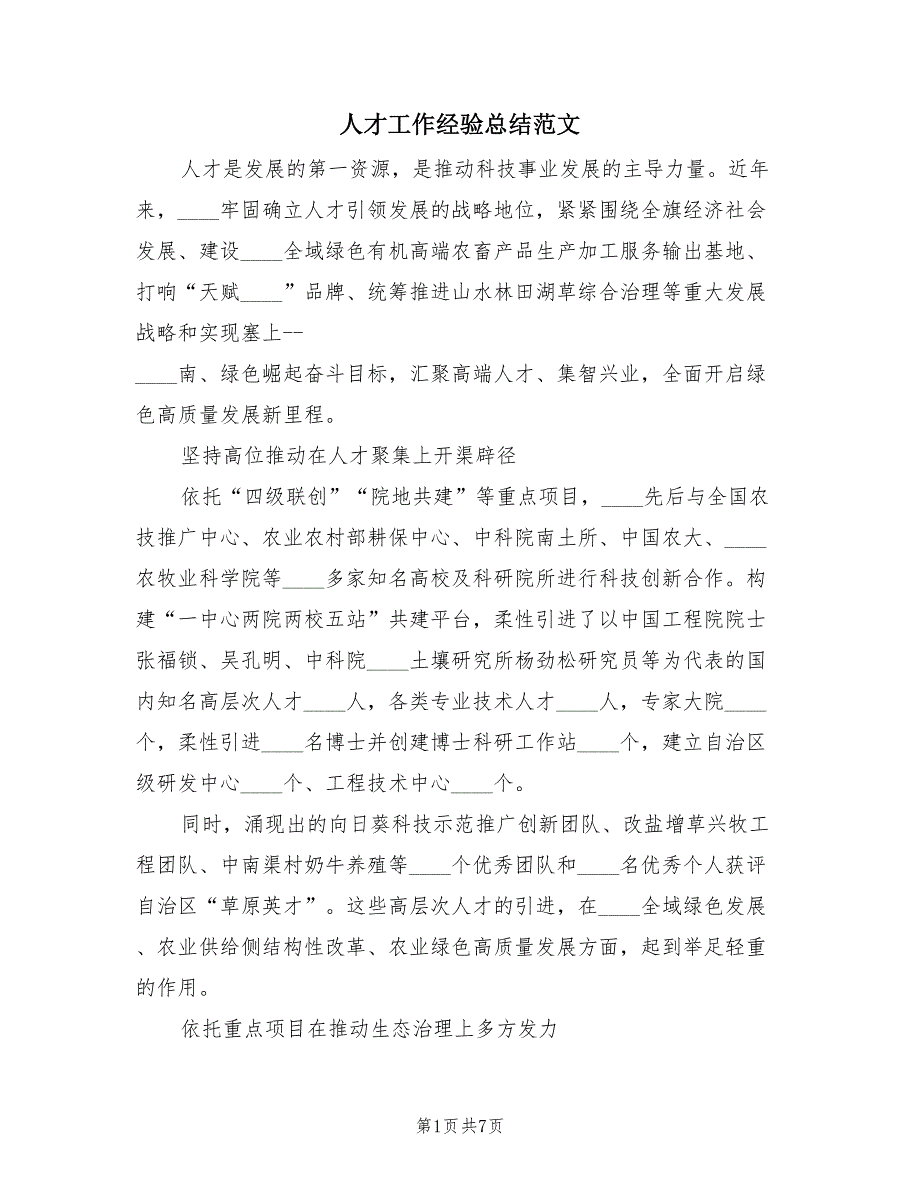 人才工作经验总结范文
人才是发展的第一资源，是推动科技事业发展的主导力量。近年
来，____牢固确立人才引领发展的战略地位，紧紧围绕全旗经济社会
发展、建设____全域绿色有机高端农畜产品生产加工服务输出基地、
打响“天赋____”品牌、统筹推进山水林田湖草综合治理等重大发展
战略和实现塞上--
____南、绿色崛起奋斗目标，汇聚高端人才、集智兴业，全面开启绿
色高质量发展新里程。
坚持高位推动在人才聚集上开渠辟径
依托“四级联创”“院地共建”等重点项目，____先后与全国农
技推广中心、农业农村部耕保中心、中科院南土所、中国农大、____
农牧业科学院等____多家知名高校及科研院所进行科技创新合作。构
建“一中心两院两校五站”共建平台，柔性引进了以中国工程院院士
张福锁、吴孔明、中科院____土壤研究所杨劲松研究员等为代表的国
内知名高层次人才____人，各类专业技术人才____人，专家大院____
个，柔性引进____名博士并创建博士科研工作站____个，建立自治区
级研发中心____个、工程技术中心____个。
同时，涌现出的向日葵科技示范推广创新团队、改盐增草兴牧工
程团队、中南渠村奶牛养殖等____个优秀团队和____名优秀个人获评
自治区“草原英才”。这些高层次人才的引进，在____全域绿色发展
、农业供给侧结构性改革、农业绿色高质量发展方面，起到举足轻重
的作用。
依托重点项目在推动生态治理上多方发力
第1页共7页